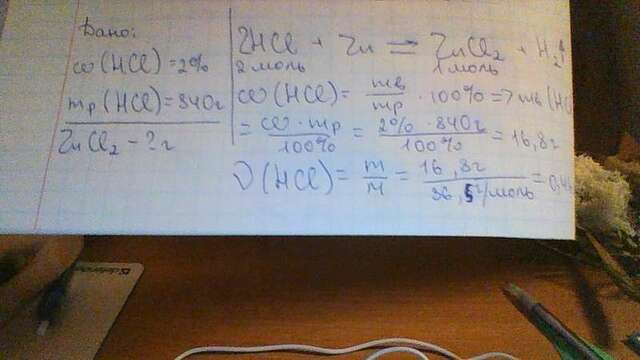 Дано:
ω(HCl) = 2%
mр(HCl) = 840г
ZnCl₂ - ? г
2HCl + Zn = ZnCl₂ + H₂↑
2 моль 1 моль
ω(HCl) = mв/mр · 100% => mв(HC
= ω · mр/100% = 2% · 840г/100% = 16,8г
ν(HCl) = m/M = 16,8г/36,5г/моль = 0,4